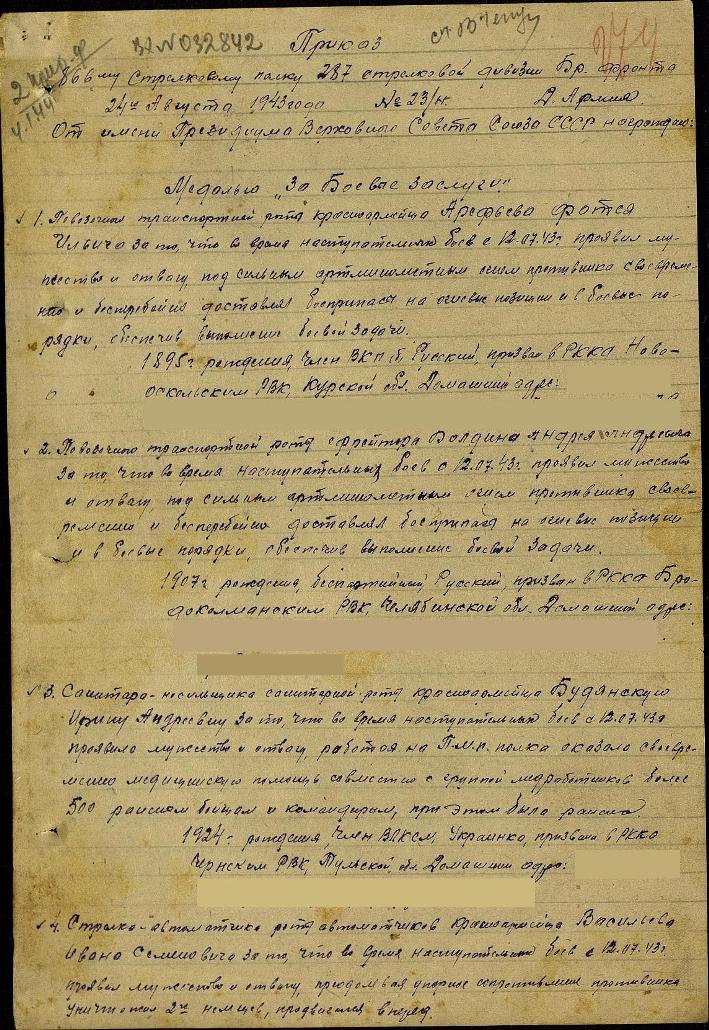 32 N 032842
Приказ
866 му Стрелковому полку 287 стрелковой дивизии Бр. фронта
24го Августа 1943 года № 23/н Д. Армия.
От имени Президиума Верховного Совета Союза СССР награждаю:
Медалью „За Боевые заслуги"
1. Повозочного транспортной роты красноармейца Арефьева Фотея
Ильича за то, что во время наступательных боев с 12.07.43г. проявил му-
жество и отвагу, под сильным артминометным огнем противника своевремен-
но и бесперебойно доставлял боеприпасы на огневые позиции и в боевые по-
рядки, обеспечив выполнение боевой задачи.
1895г. рождения, член ВКП б, Русский, призван в РККА Ново-
оскольским РВК, Курской обл. Домашний адрес:
2. Повозочного транспортной роты ефрейтора Болдина Андрея Андреевича
за то, что во время наступательных боев с 12.07.43г. проявил мужество
и отвагу, под сильным артминометным огнем противника своев-
ременно и бесперебойно доставлял боеприпасы на огневые позиции
и в боевые порядки, обеспечив выполнение боевой задачи.
1907г. рождения, беспартийный, Русский, призван в РККА Бро-
доколманским РВК, Челябинской обл. Домашний адрес:
3. Санитара-носильщика санитарной роты красноармейца Будянскую
Ирину Андреевну за то, что во время наступательных боев с 12.07.43г
проявила мужество и отвагу, работая на П.М.П. полка оказала своевре-
менно медицинскую помощь совместно с группой медработников более
500 раненом бойцам и командирам, при этом была ранена.
1924г. рождения, член ВЛКСМ, Украинка, призвана в РККА
Чернским РВК, Тульской, обл. Домашний адрес:
4. Стрелка-автоматчика роты автоматчиков красноармейца Васильева
Ивана Семеновича за то, что во время наступательных боев с 12.07.43г.
проявил мужество и отвагу, преодолевая упорное сопротивление противника
уничтожил 2х немцев, продвигался вперед.